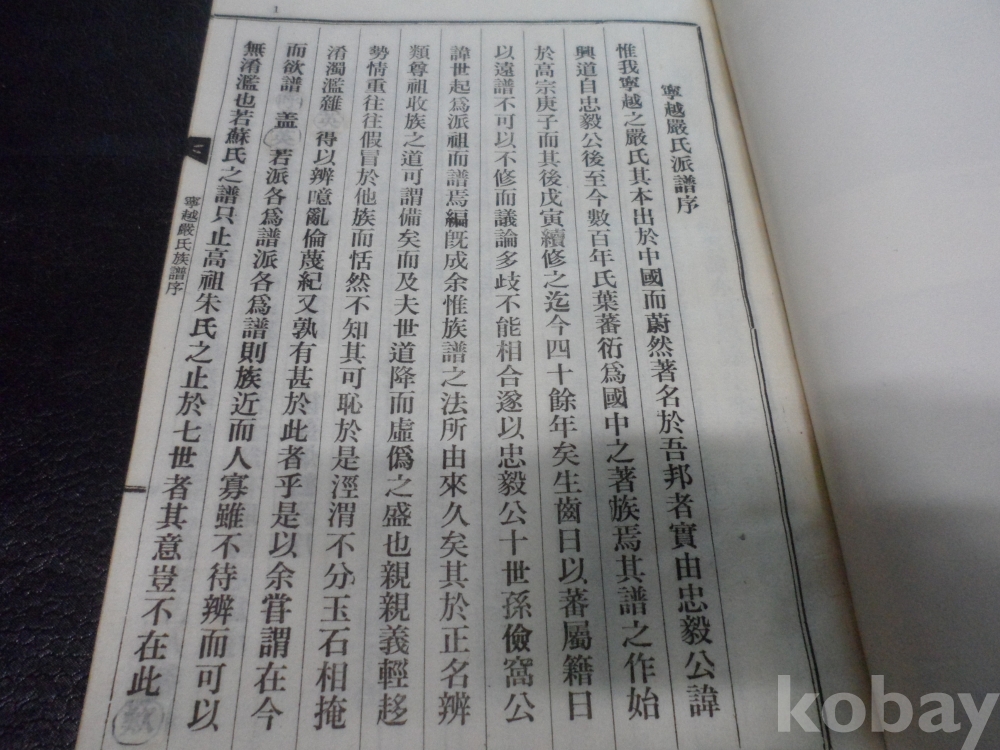 寧越嚴氏派譜序
惟我寧越之嚴氏其本出於中國而蔚然著名於吾邦者實由忠毅公諱
興道自忠毅公後至今數百年氏葉蕃衍爲國中之著族焉其譜之作始
於高宗庚子而其後戊寅續修之迄今四十餘年矣生齒日以蕃屬籍日
以遠譜不可以不修而議論多歧不能相合遂以忠毅公十世孫儉窩公
諱世起爲派祖而譜焉編旣成余惟族譜之法所由來久矣其於正名辨
類尊祖收族之道可謂備矣而及夫世道降而虛僞之盛也親親義輕趍
勢情重往往假冒於他族而恬然不知其可恥於是涇渭不分玉石相掩
淆濁濫雜 得以辨噫亂倫蔑紀又孰有甚於此者乎是以余嘗謂在今
而欲譜 盖 若派各爲譜派各爲譜則族近而人寡雖不待辨而可以
無淆濫也若蘇氏之譜只止高祖朱氏之止於七世者其意豈不在此
寧越嚴氏族譜序
1
kobay